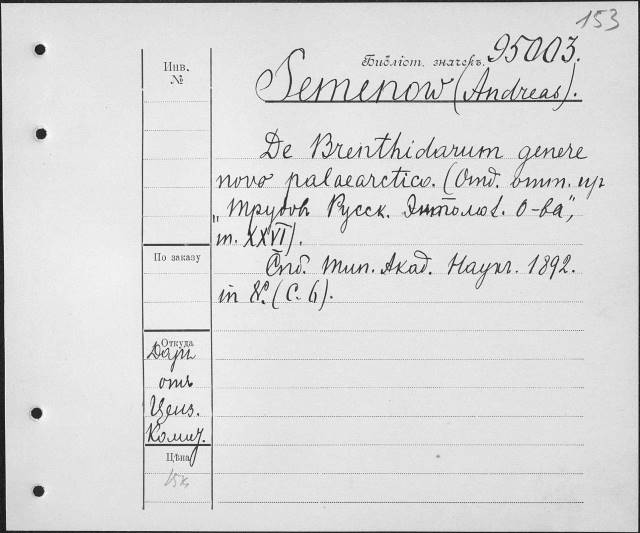 153
Инв. №
Библіот. значекъ. 95003.
Semenow (Andreas).
De Brenthidarum genere
novo palaearctico. (Отд. отт. изъ
„Трудовъ Русск. Энтомол. О-ва",
т. XXVI).
По заказу
Спб. Тип. Акад. Наукъ. 1892.
in 8°. (С. 6).
Откуда
Даръ
отъ
Ценз.
Комит.
Цѣна
15к